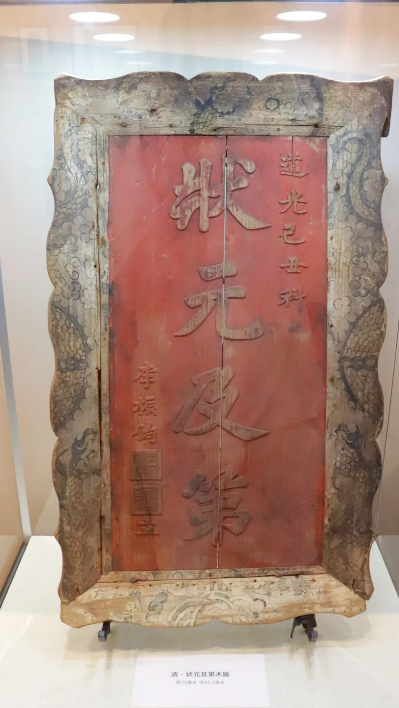 道光己丑科
狀元及第
李振鈞
立
清·狀元及第木匾